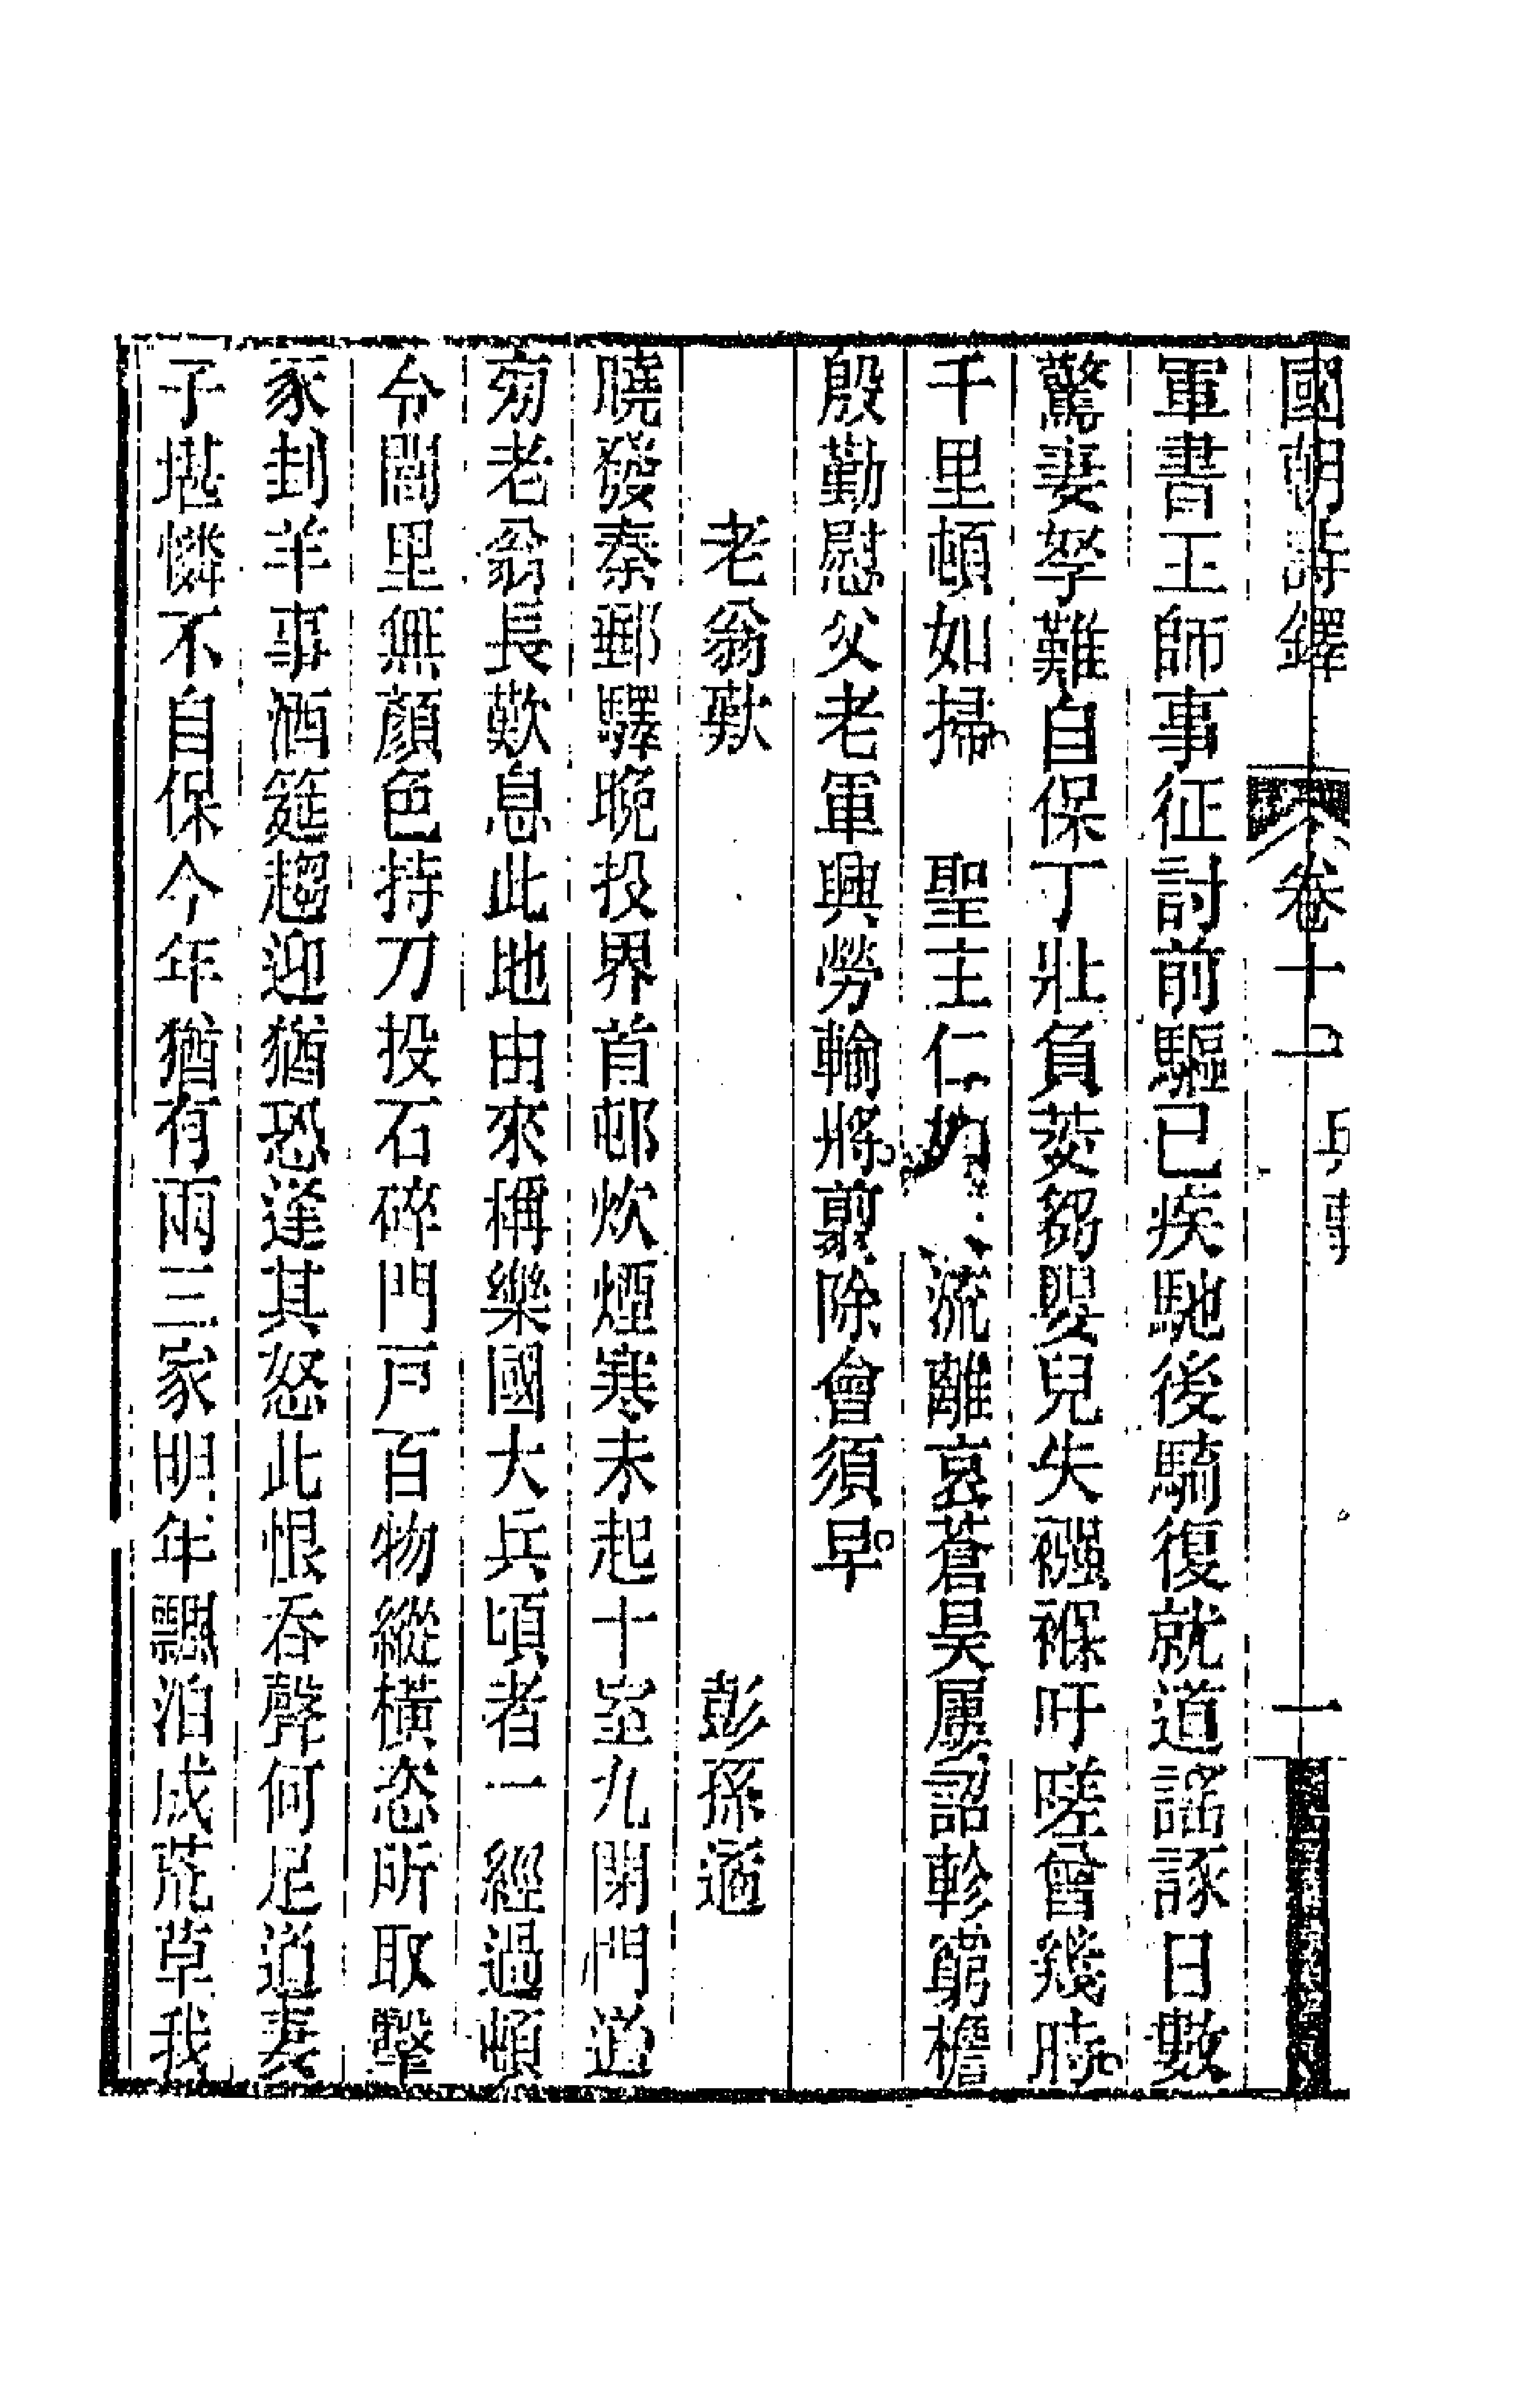 國朝詩鐸 卷十一 兵事 一
軍書王師事征討前驅已疾馳後騎復就道謡諑日數
驚妻孥難自保丁壯負茭芻嬰兒失襁褓吁嗟曾幾時
千里頓如掃 聖主仁 流離哀蒼昊屢詔軫窮檐
殷勤慰父老軍興勞輸將翦除會須早
老翁歎 彭孫遹
曉發秦郵驛晚投界首邨炊煙寒未起十室九閉門道
旁老翁長歎息此地由來稱樂國大兵頃者一經過頓
令閭里無顏色持刀投石碎門戸百物縱橫恣所取擊
豕刲羊事酒筵趨迎猶恐逢其怒此恨吞聲何足道妻
子堪憐不自保今年猶有兩三家明年飄泊成荒草我